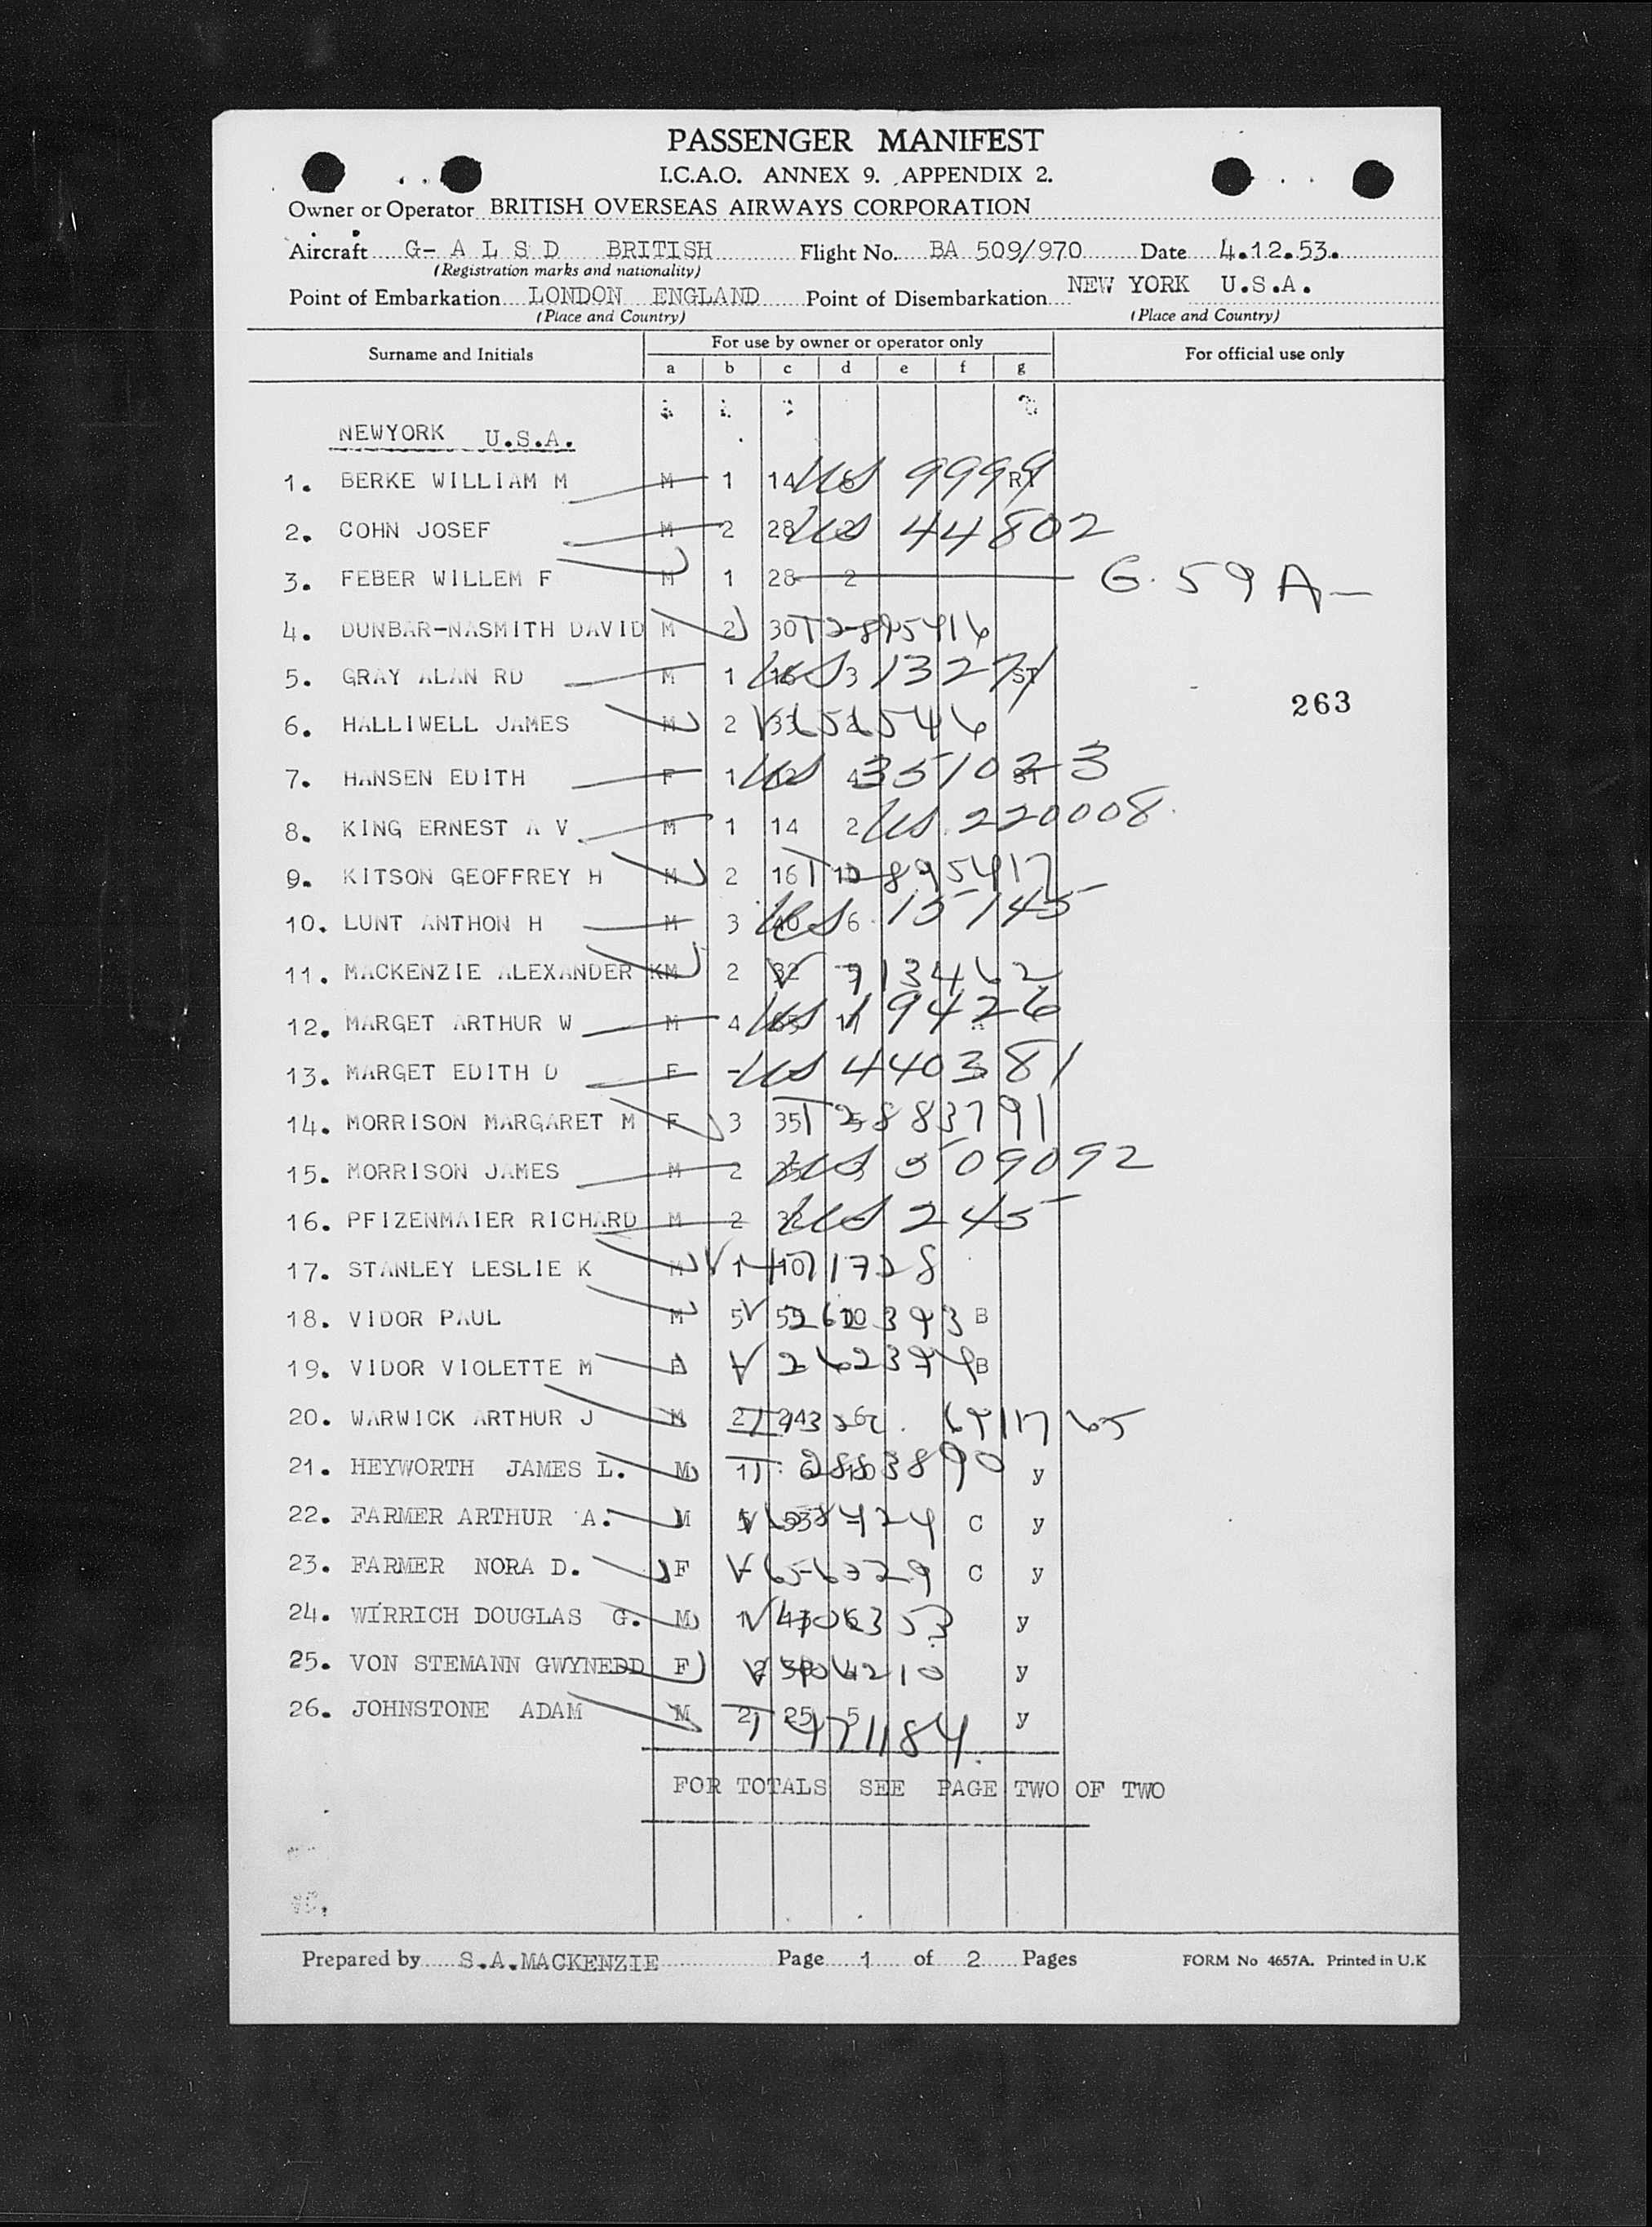 PASSENGER MANIFEST
I.C.A.O. ANNEX 9. APPENDIX 2.
Owner or Operator BRITISH OVERSEAS AIRWAYS CORPORATION
Aircraft G- A L S D BRITISH Flight No. BA 509/970 Date 4.12.53.
(Registration marks and nationality)
Point of Embarkation LONDON ENGLAND Point of Disembarkation NEW YORK U.S.A.
(Place and Country) (Place and Country)
Surname and Initials For use by owner or operator only For official use only
a b c d e f g
NEWYORK U.S.A.
1. BERKE WILLIAM M M 1 14 US 9999
2. COHN JOSEF M 2 28 US 44802
3. FEBER WILLEM F M 1 28 2 G. 59 A
4. DUNBAR-NASMITH DAVID M 2 30
5. GRAY ALAN RD M 1 US 3 13271 ST
6. HALLIWELL JAMES M 2
263
7. HANSEN EDITH F 1 US 351023
8. KING ERNEST A V M 1 14 2 US 220008
9. KITSON GEOFFREY H M 2 16
10. LUNT ANTHON H M 3 US 6 15145
11. MACKENZIE ALEXANDER KM 2 32
12. MARGET ARTHUR W M 4 US 19426
13. MARGET EDITH D F - US 440381
14. MORRISON MARGARET M F 3 35
15. MORRISON JAMES M 2 US 509092
16. PFIZENMAIER RICHARD M 2 US 245
17. STANLEY LESLIE K M 1
18. VIDOR PAUL M 5 B
19. VIDOR VIOLETTE M F B
20. WARWICK ARTHUR J M 2
21. HEYWORTH JAMES L. M y
22. FARMER ARTHUR A. M C y
23. FARMER NORA D. F C y
24. WIRRICH DOUGLAS G. M y
25. VON STEMANN GWYNEDD F y
26. JOHNSTONE ADAM M 2 25 5 y
FOR TOTALS SEE PAGE TWO OF TWO
Prepared by S.A.MACKENZIE Page 1 of 2 Pages FORM No 4657A. Printed in U.K